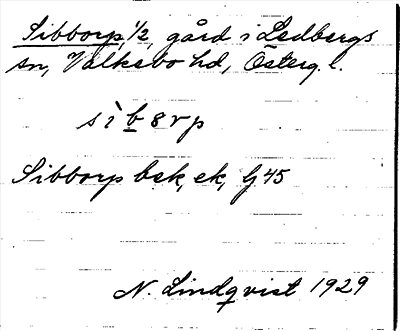 Sibborp, 1/2, gård i Ledbergs
sn, Valkebo hd, Österg. l.
sìb̲ɜrp
Sibborp bsk, ek, G 45
N. Lindqvist 1929